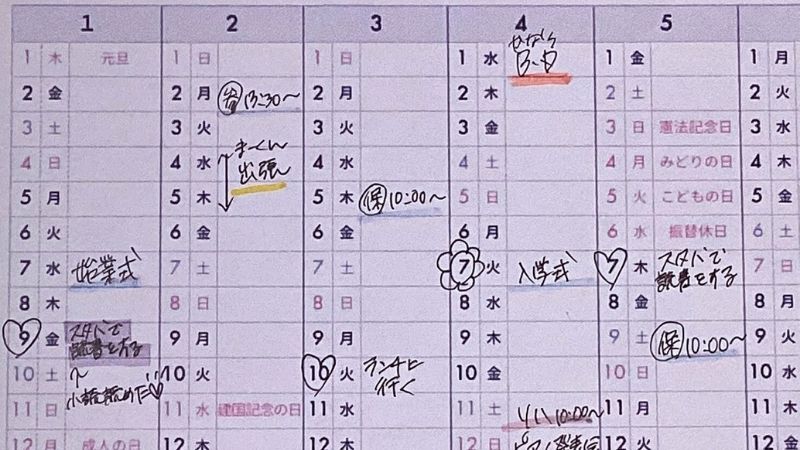 1 2 3 4 5
1 木 元旦 1 日 1 日 1 水 B.D 1 金 1 月
2 金 2 月 13:30〜 2 月 2 木 2 土 2 火
3 土 3 火 3 火 3 金 3 日 憲法記念日 3 水
4 日 4 水 まーくん 出張 4 水 4 土 4 月 みどりの日 4 木
5 月 5 木 5 木 保 10:00〜 5 日 5 火 こどもの日 5 金
6 火 6 金 6 金 6 月 6 水 振替休日 6 土
7 水 始業式 7 土 7 土 7 火 入学式 7 木 スタバで 読書をする 7 日
8 木 8 日 8 日 8 水 8 金 8 月
9 金 スタバで 読書をする 9 月 9 月 9 木 9 土 保 10:00〜 9 火
10 土 10 火 10 火 ランチに 行く 10 金 10 日 10 水
11 日 11 水 建国記念の日 11 水 11 土 10:00〜 11 月 11 木
12 月 成人の日 12 木 12 木 12 日 12 火 12 金